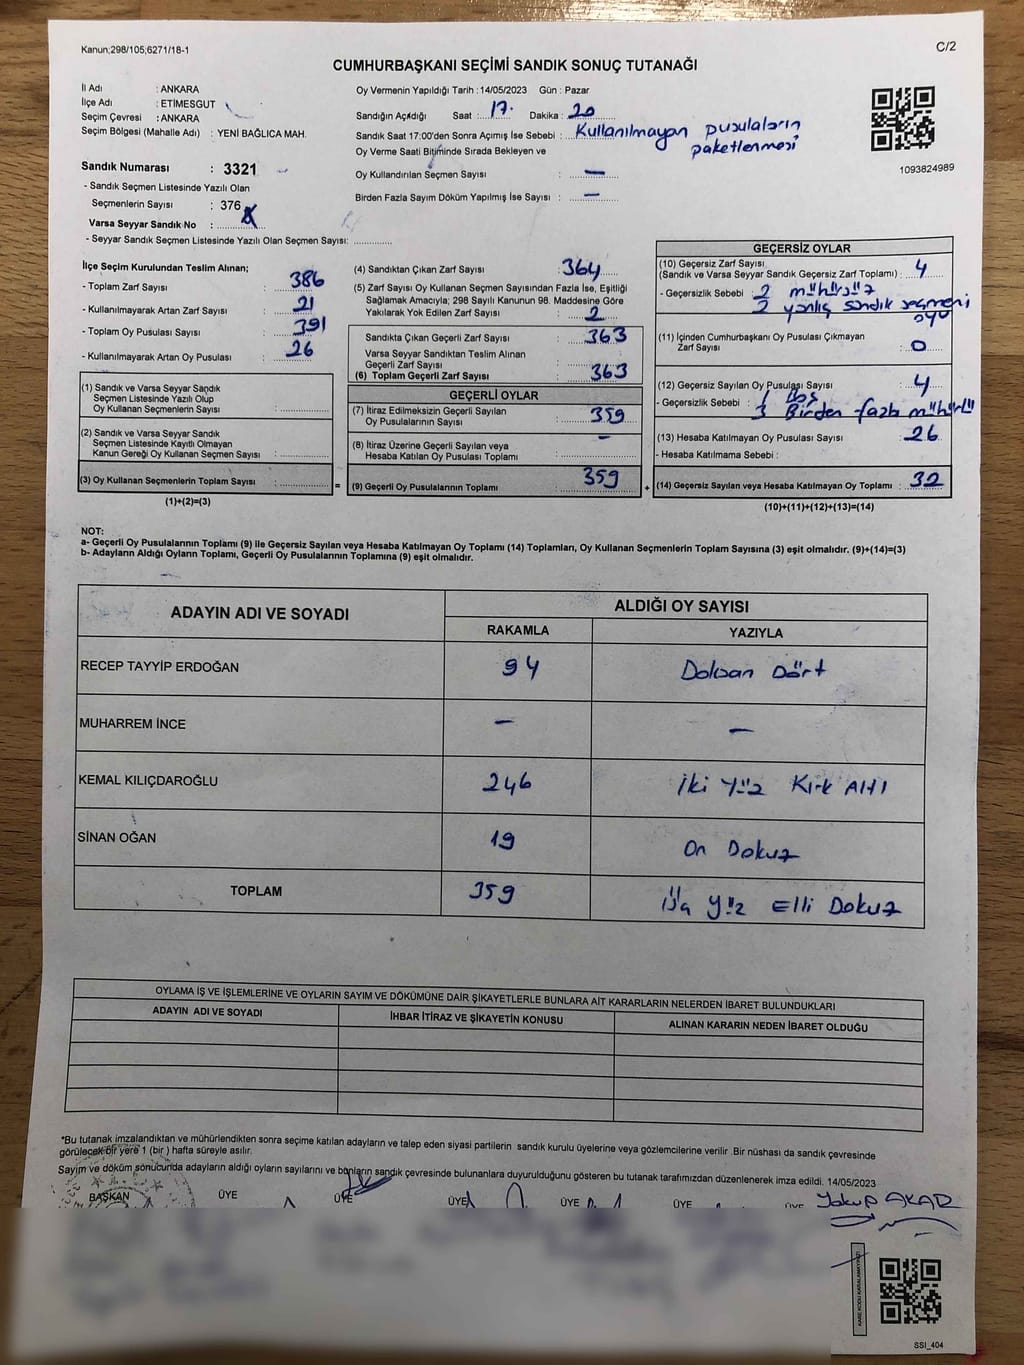 Kanun;298/105;6271/18-1
C/2
CUMHURBAŞKANI SEÇİMİ SANDIK SONUÇ TUTANAĞI
İl Adı : ANKARA
İlçe Adı : ETİMESGUT
Seçim Çevresi : ANKARA
Seçim Bölgesi (Mahalle Adı) : YENİ BAĞLICA MAH.
Sandık Numarası : 3321
- Sandık Seçmen Listesinde Yazılı Olan
Seçmenlerin Sayısı : 376
Varsa Seyyar Sandık No :
- Seyyar Sandık Seçmen Listesinde Yazılı Olan Seçmen Sayısı:
Oy Vermenin Yapıldığı Tarih : 14/05/2023 Gün : Pazar
Sandığın Açıldığı Saat : 17. Dakika : 20
Sandık Saat 17:00'den Sonra Açımış İse Sebebi : Kullanılmayan pusulaların
paketlenmesi
Oy Verme Saati Bitiminde Sırada Bekleyen ve
Oy Kullandırılan Seçmen Sayısı : —
Birden Fazla Sayım Döküm Yapılmış İse Sayısı : —
1093824989
İlçe Seçim Kurulundan Teslim Alınan;
- Toplam Zarf Sayısı : 386
- Kullanılmayarak Artan Zarf Sayısı : 21
- Toplam Oy Pusulası Sayısı : 391
- Kullanılmayarak Artan Oy Pusulası : 26
(1) Sandık ve Varsa Seyyar Sandık
Seçmen Listesinde Yazılı Olup
Oy Kullanan Seçmenlerin Sayısı :
(2) Sandık ve Varsa Seyyar Sandık
Seçmen Listesinde Kayıtlı Olmayan
Kanun Gereği Oy Kullanan Seçmen Sayısı :
(3) Oy Kullanan Seçmenlerin Toplam Sayısı :
(1)+(2)=(3)
(4) Sandıktan Çıkan Zarf Sayısı : 364
(5) Zarf Sayısı Oy Kullanan Seçmen Sayısından Fazla İse, Eşitliği
Sağlamak Amacıyla; 298 Sayılı Kanunun 98. Maddesine Göre
Yakılarak Yok Edilen Zarf Sayısı : 2
Sandıkta Çıkan Geçerli Zarf Sayısı : 363
Varsa Seyyar Sandıktan Teslim Alınan
Geçerli Zarf Sayısı :
(6) Toplam Geçerli Zarf Sayısı : 363
GEÇERLİ OYLAR
(7) İtiraz Edilmeksizin Geçerli Sayılan
Oy Pusulalarının Sayısı : 359
(8) İtiraz Üzerine Geçerli Sayılan veya
Hesaba Katılan Oy Pusulası Toplamı : —
(9) Geçerli Oy Pusulalarının Toplamı : 359
GEÇERSİZ OYLAR
(10) Geçersiz Zarf Sayısı
(Sandık ve Varsa Seyyar Sandık Geçersiz Zarf Toplamı) : 4
- Geçersizlik Sebebi : 2 mühürsüz
2 yanlış sandık seçmeni
oyu
(11) İçinden Cumhurbaşkanı Oy Pusulası Çıkmayan
Zarf Sayısı : 0
(12) Geçersiz Sayılan Oy Pusulası Sayısı : 4
- Geçersizlik Sebebi : 1 Boş
3 Birden fazla mühürlü
(13) Hesaba Katılmayan Oy Pusulası Sayısı : 26
- Hesaba Katılmama Sebebi :
(14) Geçersiz Sayılan veya Hesaba Katılmayan Oy Toplamı : 32
(10)+(11)+(12)+(13)=(14)
NOT:
a- Geçerli Oy Pusulalarının Toplamı (9) ile Geçersiz Sayılan veya Hesaba Katılmayan Oy Toplamı (14) Toplamları, Oy Kullanan Seçmenlerin Toplam Sayısına (3) eşit olmalıdır. (9)+(14)=(3)
b- Adayların Aldığı Oyların Toplamı, Geçerli Oy Pusulalarının Toplamına (9) eşit olmalıdır.
ADAYIN ADI VE SOYADI ALDIĞI OY SAYISI
RAKAMLA YAZIYLA
RECEP TAYYİP ERDOĞAN 94 Doksan Dört
MUHARREM İNCE — —
KEMAL KILIÇDAROĞLU 246 İki Yüz Kırk Altı
SİNAN OĞAN 19 On Dokuz
TOPLAM 359 Üç Yüz Elli Dokuz
OYLAMA İŞ VE İŞLEMLERİNE VE OYLARIN SAYIM VE DÖKÜMÜNE DAİR ŞİKAYETLERLE BUNLARA AİT KARARLARIN NELERDEN İBARET BULUNDUKLARI
ADAYIN ADI VE SOYADI İHBAR İTİRAZ VE ŞİKAYETİN KONUSU ALINAN KARARIN NEDEN İBARET OLDUĞU
*Bu tutanak imzalandıktan ve mühürlendikten sonra seçime katılan adayların ve talep eden siyasi partilerin sandık kurulu üyelerine veya gözlemcilerine verilir .Bir nüshası da sandık çevresinde
görülecek bir yere 1 (bir ) hafta süreyle asılır.
Sayım ve döküm sonucunda adayların aldığı oyların sayılarını ve bunların sandık çevresinde bulunanlara duyurulduğunu gösteren bu tutanak tarafımızdan düzenlenerek imza edildi. 14/05/2023
BAŞKAN ÜYE ÜYE ÜYE ÜYE ÜYE ÜYE Yakup AKAR
KARE KODU KARALAMAYINIZ
SSI_404